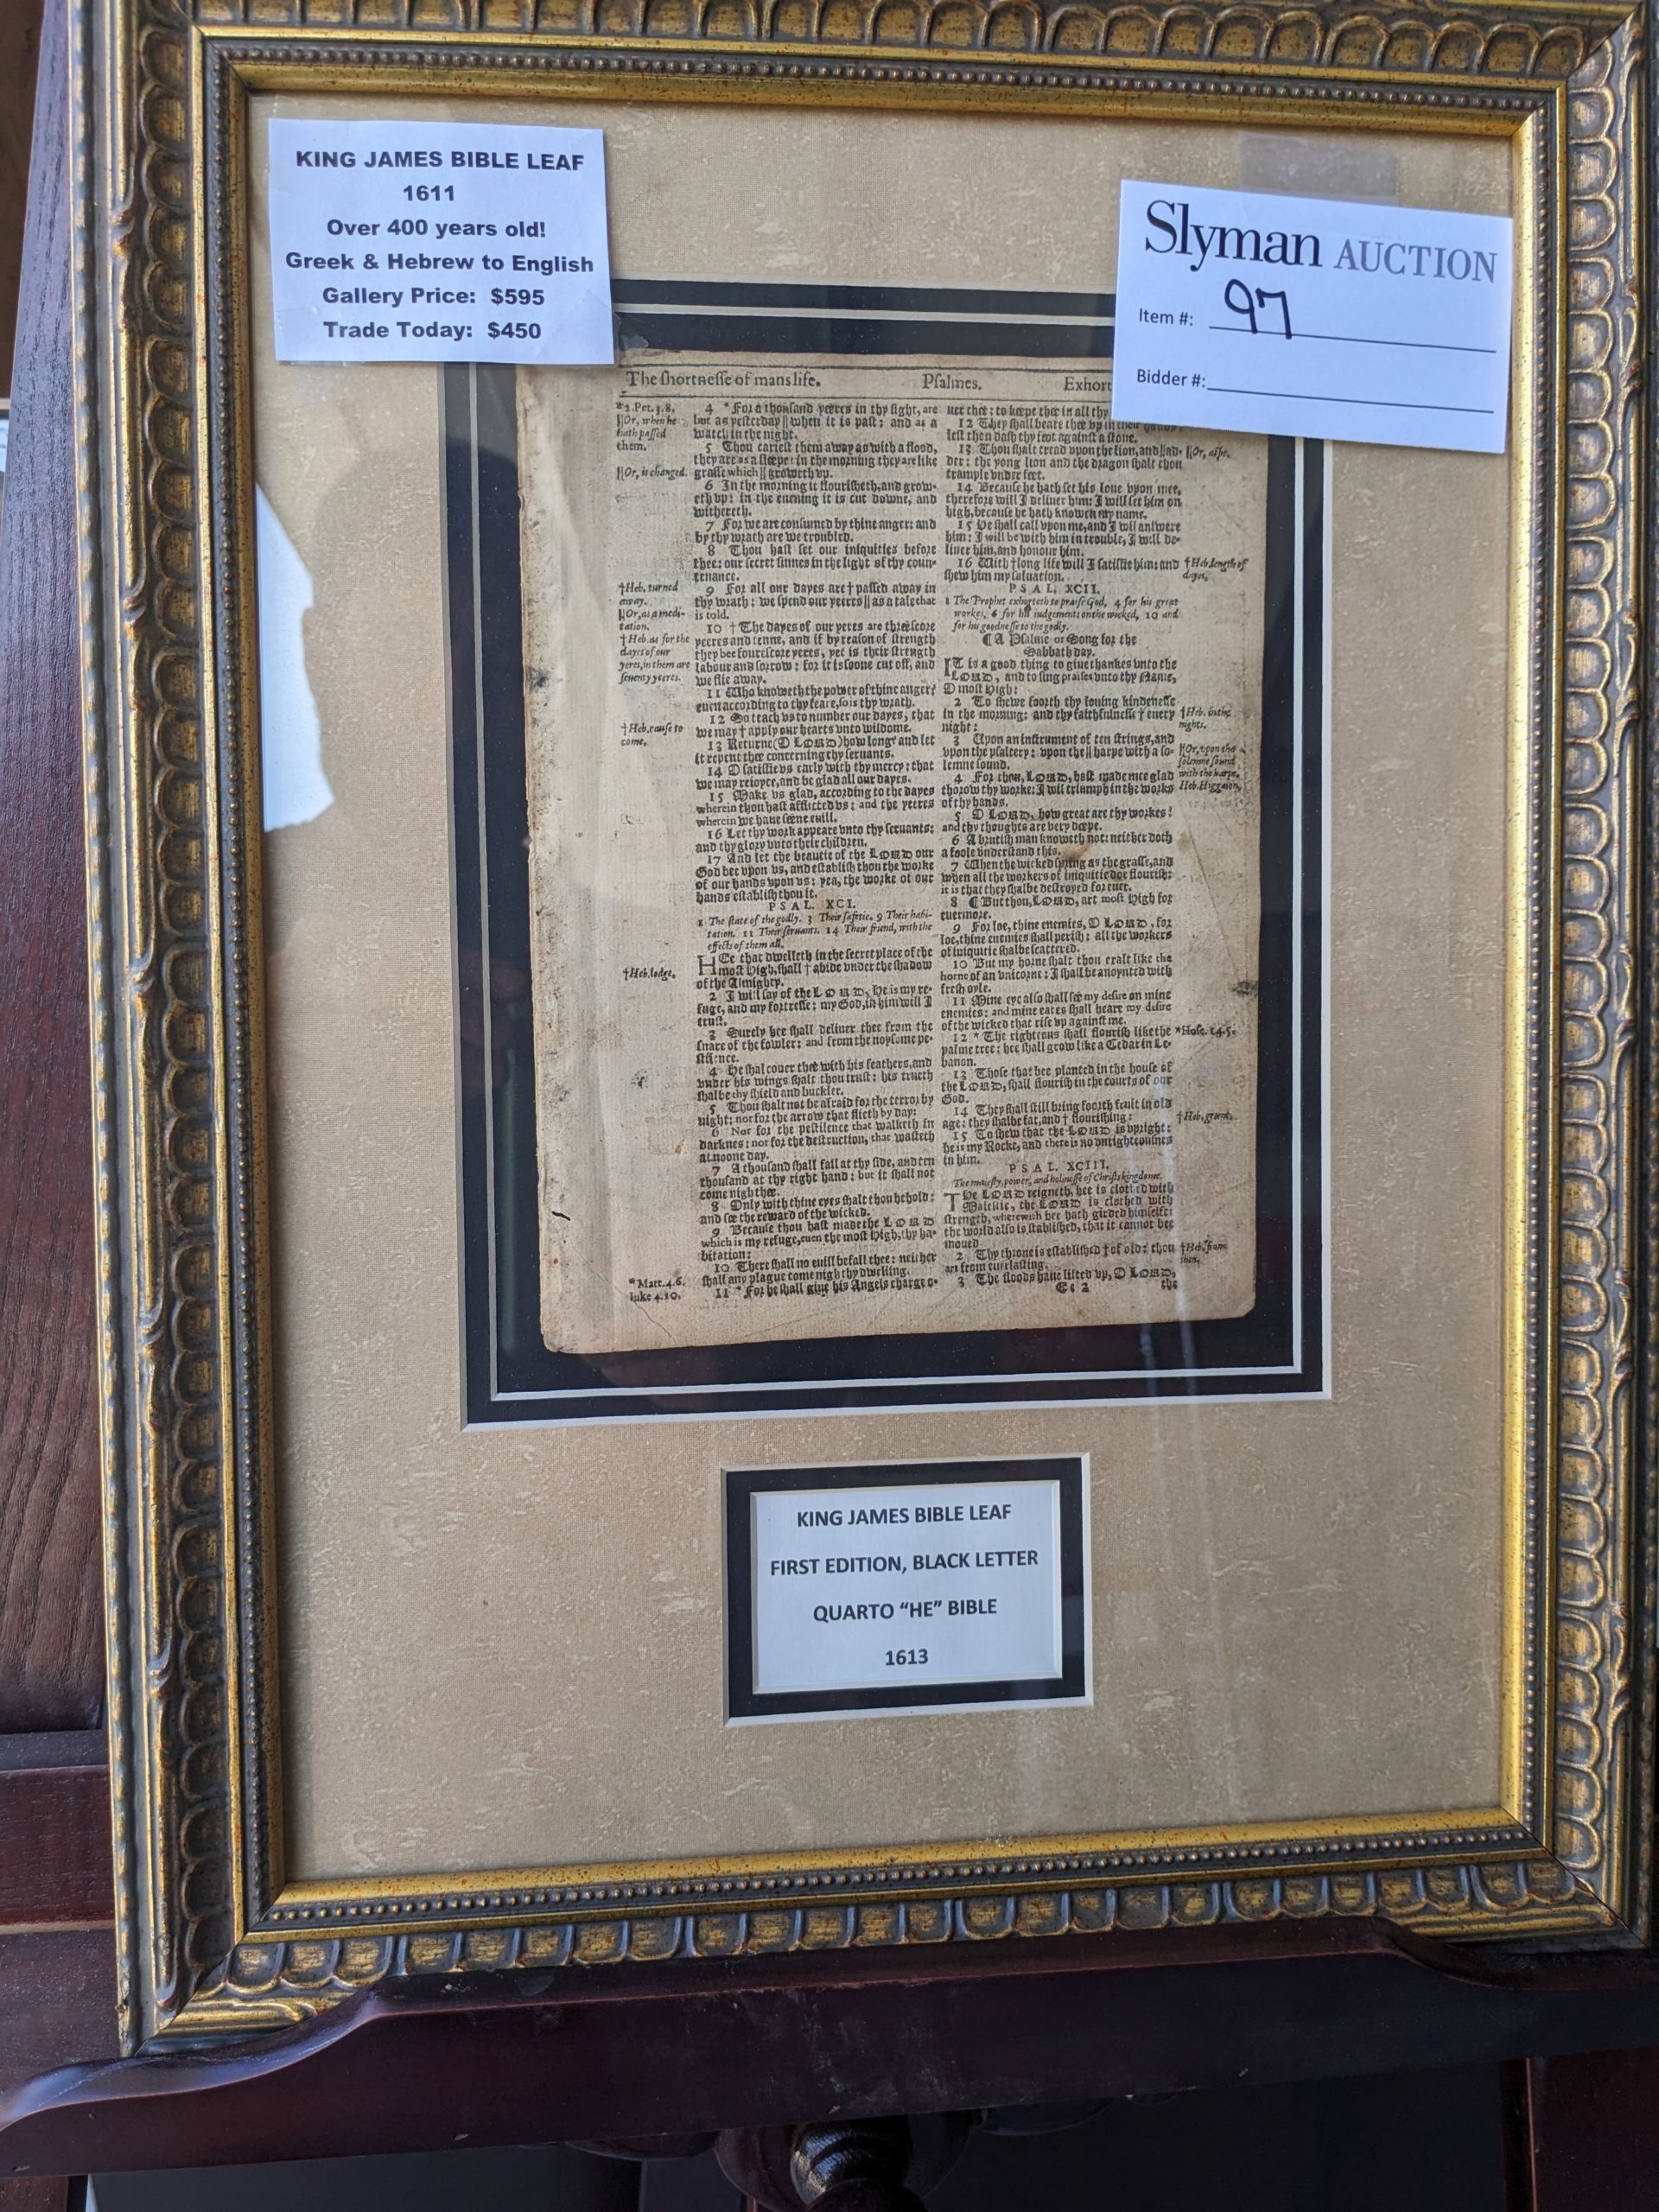 KING JAMES BIBLE LEAF
1611
Over 400 years old!
Greek & Hebrew to English
Gallery Price: $595
Trade Today: $450
Slyman AUCTION
Item #: 97
Bidder #:
The shortnesse of mans life.
Psalmes.
Exhort
* 2. Pet. 3. 8.
|| Or, when he
hath passed
them.
|| Or, is changed.
† Heb. turned
away.
|| Or, as a medi-
tation.
† Heb. as for the
dayes of our
yeres, in them are
seventy yeeres.
† Heb. cause to
come.
† Heb. lodge.
* Matt. 4. 6.
luke 4. 10.
4 * For a thousand yeeres in thy sight, are
but as yesterday || when it is past: and as a
watch in the night.
5 Thou cariest them away as with a flood,
they are as a sleepe: in the morning they are like
grasse which || groweth up.
6 In the morning it flourisheth, and grow-
eth vp: in the euening it is cut downe, and
withereth.
7 For we are consumed by thine anger: and
by thy wrath are we troubled.
8 Thou hast set our iniquities before
thee: our secret sinnes in the light of thy coun-
tenance.
9 For all our dayes are † passed away in
thy wrath: we spend our yeeres || as a tale that
is told.
10 † The dayes of our yeres are threescore
yeeres and tenne, and if by reason of strength
they bee fourescore yeres, yet is their strength
labour and sorrow: for it is soone cut off, and
we flie away.
11 Who knoweth the power of thine anger?
euen according to thy feare, so is thy wrath.
12 So teach vs to number our dayes, that
we may † apply our hearts vnto wisdome.
13 Returne (O LORD) how long? and let
it repent thee concerning thy seruants.
14 O satisfie vs early with thy mercy: that
we may reioyce, and be glad all our dayes.
15 Make vs glad, according to the dayes
wherein thou hast afflicted vs: and the yeeres
wherein we haue seene euill.
16 Let thy work appeare vnto thy seruants:
and thy glory vnto their children.
17 And let the beautie of the LORD our
God bee vpon vs, and establish thou the worke
of our hands vpon vs: yea, the worke of our
hands establish thou it.
PSAL. XCI.
1 The state of the godly. 3 Their safetie. 9 Their habi-
tation. 11 Their seruants. 14 Their friend, with the
effects of them all.
HEe that dwelleth in the secret place of the
most High, shall † abide vnder the shadow
of the Almighty.
2 I will say of the LORD, He is my re-
fuge, and my fortresse: my God, in him will I
trust.
3 Surely hee shall deliuer thee from the
snare of the fowler: and from the noysome pe-
stilence.
4 He shal couer thee with his feathers, and
vnder his wings shalt thou trust: his trueth
shalbe thy shield and buckler.
5 Thou shalt not be afraid for the terror by
night: nor for the arrow that flieth by day:
6 Nor for the pestilence that walketh in
darknes: nor for the destruction, that wasteth
at noone day.
7 A thousand shall fall at thy side, and ten
thousand at thy right hand: but it shall not
come nigh thee.
8 Only with thine eyes shalt thou behold:
and see the reward of the wicked.
9 Because thou hast made the LORD
which is my refuge, euen the most High, thy ha-
bitation:
10 There shall no euill befall thee: neither
shall any plague come nigh thy dwelling.
11 * For he shall giue his Angels charge o-
uer thee: to keepe thee in all thy
12 They shall beare thee vp in their hands:
lest thou dash thy foot against a stone.
13 Thou shalt tread vpon the lion, and || ad-
der: the yong lion and the dragon shalt thou
trample vnder feet.
14 Because he hath set his loue vpon mee,
therefore will I deliuer him: I will set him on
high, because he hath knowen my name.
15 He shall call vpon me, and I wil answere
him: I will be with him in trouble, I will de-
liuer him, and honour him.
16 With † long life will I satisfie him: and
shew him my saluation.
PSAL. XCII.
1 The Prophet exhorteth to praise God, 4 for his great
workes, 6 for his iudgements on the wicked, 10 and
for his goodnesse to the godly.
¶ A Psalme or Song for the
Sabbath day.
IT is a good thing to giue thankes vnto the
LORD, and to sing praises vnto thy Name,
O most High:
2 To shewe foorth thy louing kindenesse
in the morning: and thy faithfulnesse † euery
night:
3 Upon an instrument of ten strings, and
vpon the psaltery: vpon the || harpe with a so-
lemne sound.
4 For thou, LORD, hast made mee glad
thorow thy worke: I wil triumph in the works
of thy hands.
5 O LORD, how great are thy workes!
and thy thoughts are very deepe.
6 A brutish man knoweth not: neither doth
a foole vnderstand this.
7 When the wicked spring as the grasse, and
when all the workers of iniquitie doe flourish:
it is that they shalbe destroyed for euer.
8 ¶ But thou, LORD, art most High for
euermore.
9 For loe, thine enemies, O LORD, for
loe, thine enemies shall perish: all the workers
of iniquitie shalbe scattered.
10 But my horne shalt thou exalt like the
horne of an vnicorne: I shall be anoynted with
fresh oyle.
11 Mine eye also shall see my desire on mine
enemies: and mine eares shall heare my desire
of the wicked that rise vp against me.
12 * The righteous shall flourish like the
palme tree: hee shall grow like a Cedar in Le-
banon.
13 Those that bee planted in the house of
the LORD, shall flourish in the courts of our
God.
14 They shall still bring foorth fruit in old
age: they shalbe fat, and † flourishing:
15 To shew that the LORD is vpright:
he is my Rocke, and there is no vnrighteousnes
in him.
PSAL. XCIII.
The maiesty, power, and holinesse of Christs kingdome.
THe LORD reigneth, hee is clothed with
Maiestie, the LORD is clothed with
strength, wherewith hee hath girded himselfe:
the world also is stablished, that it cannot bee
moued.
2 Thy throne is established † of old: thou
art from euerlasting.
3 The floods haue lifted vp, O LORD,
Ee 2 the
|| Or, aspe.
† Heb. length of
dayes.
† Heb. in the
nights.
|| Or, vpon the
solemne sound
with the harpe.
Heb. Higgaion.
* Hose. 14. 5.
† Heb. greene.
† Heb. from
then.
KING JAMES BIBLE LEAF
FIRST EDITION, BLACK LETTER
QUARTO “HE” BIBLE
1613